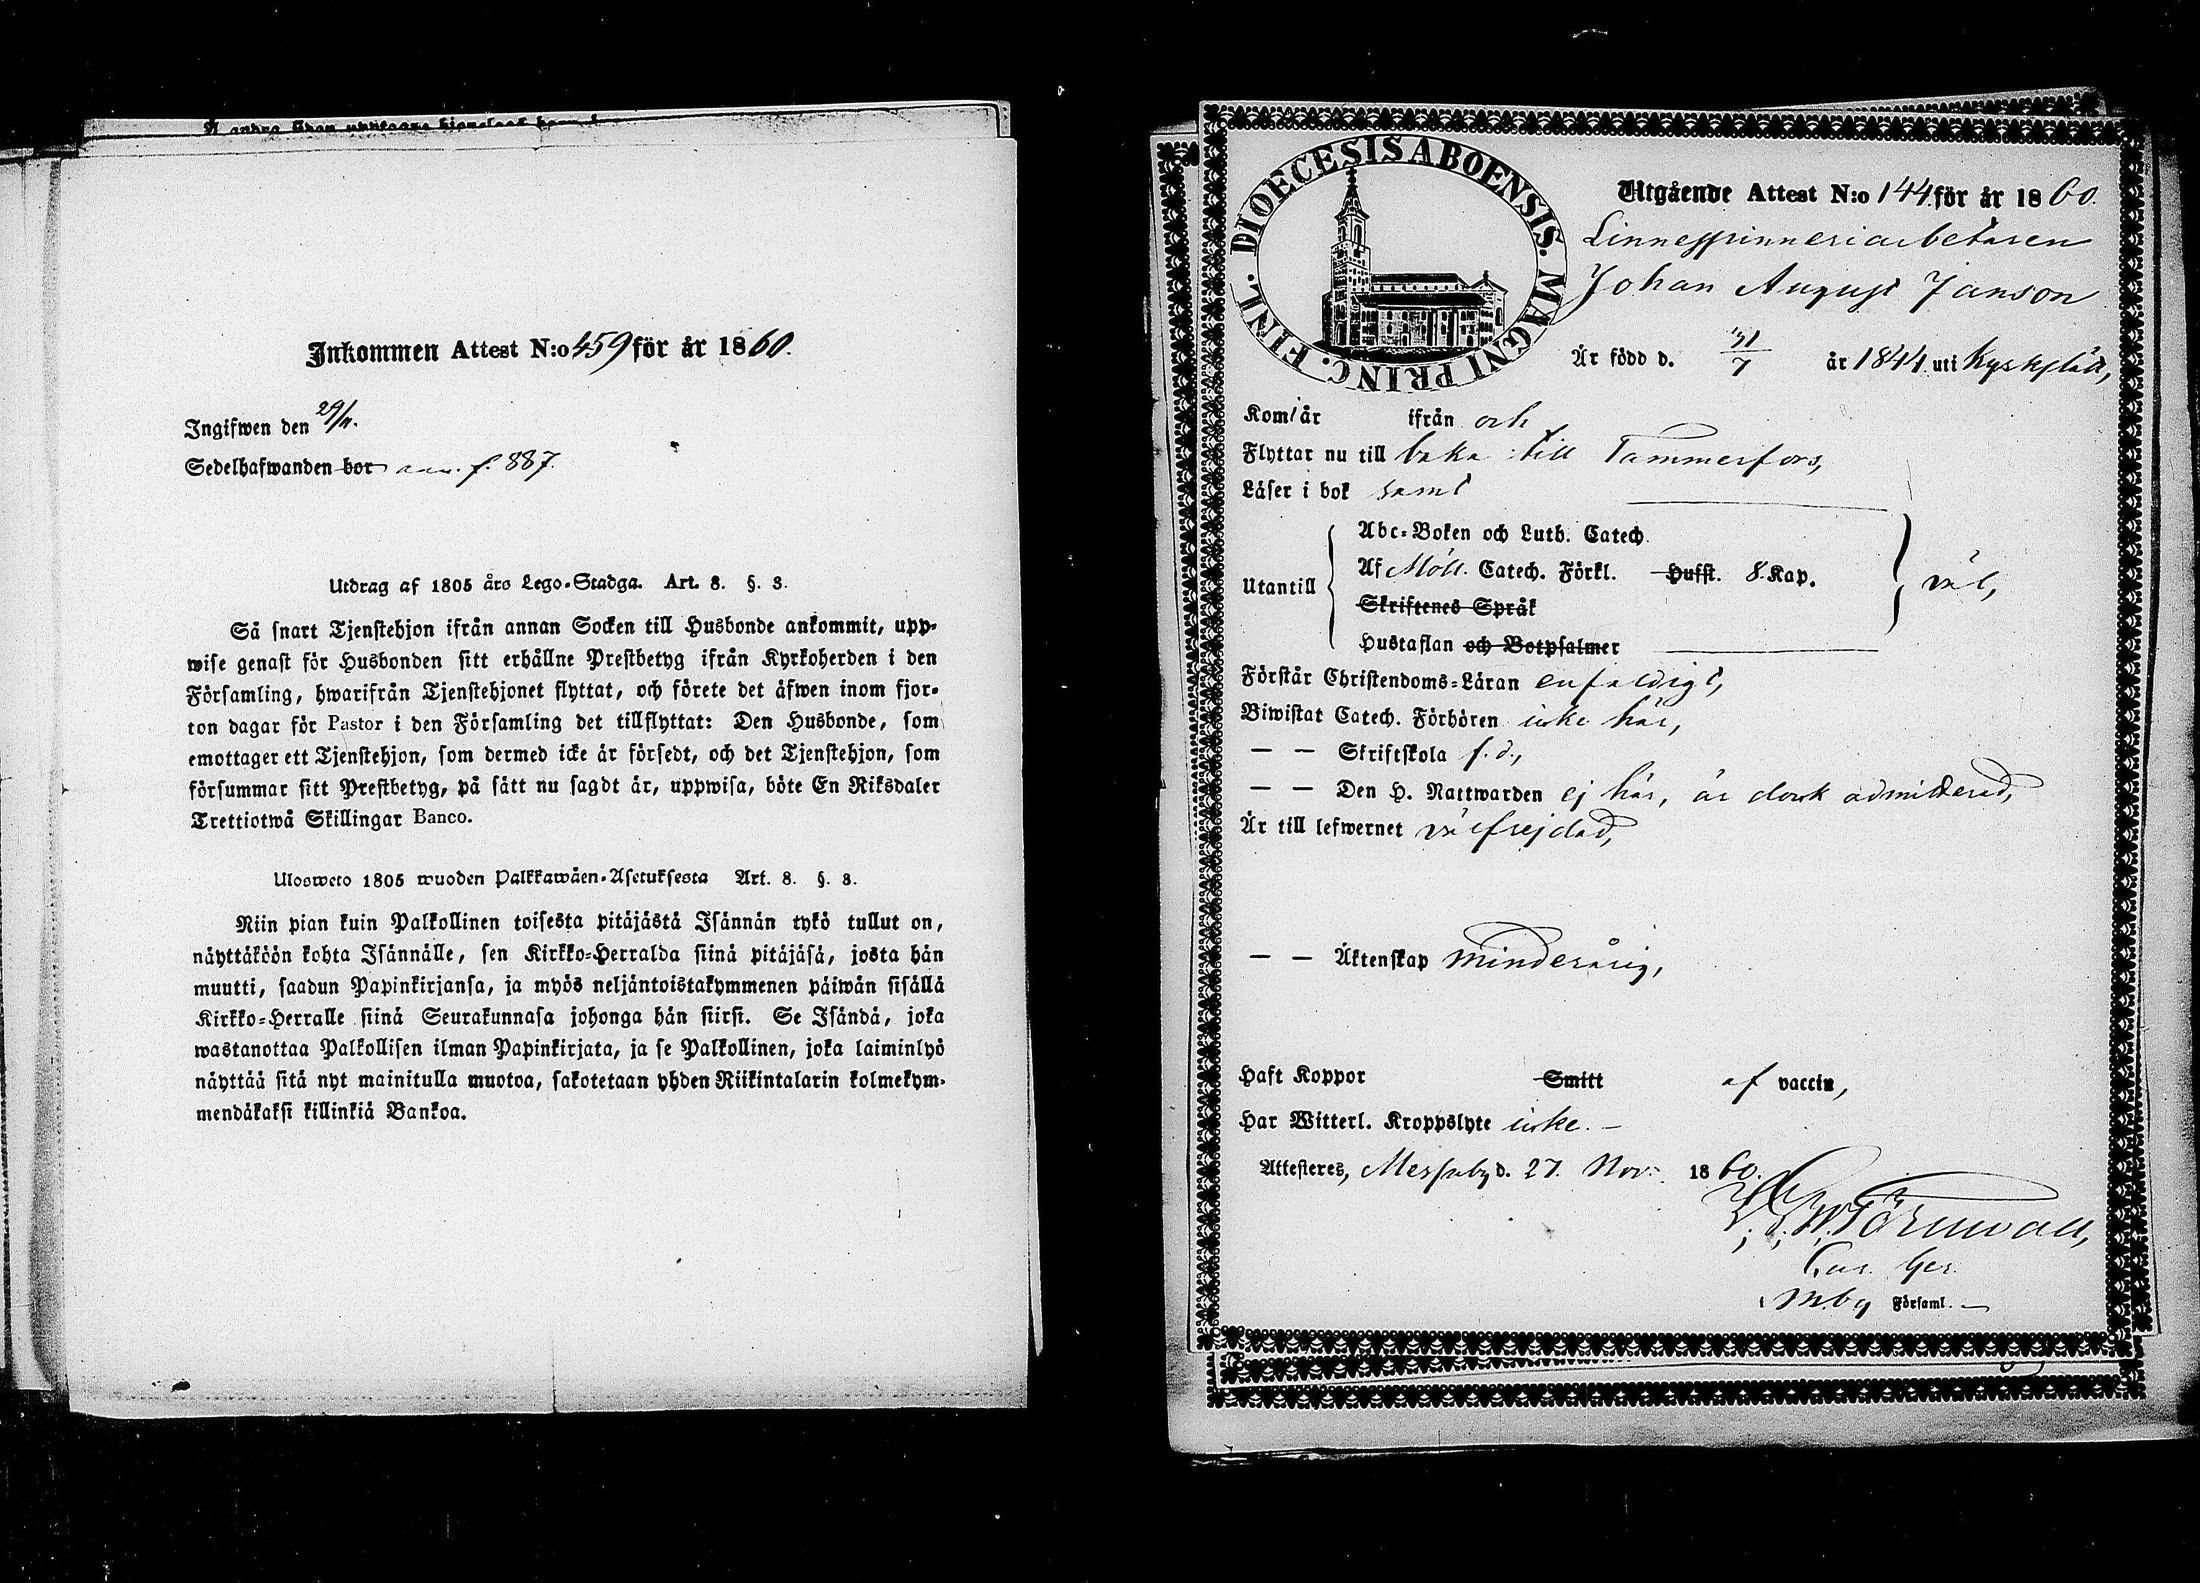 Inkommen Attest N:o 459 för år 1860.
Ingifwen den 29/11.
Sedelhafwanden bor ann. f. 887.
Utdrag af 1805 års Lego-Stadga. Art. 8. §. 3.
Så snart Tjenstehjon ifrån annan Socken till Husbonde ankommit, upp-
wise genast för Husbonden sitt erhållne Prestbetyg ifrån Kyrkoherden i den
Församling, hwarifrån Tjenstehjonet flyttat, och förete det äfwen inom fjor-
ton dagar för Pastor i den Församling det tillflyttat: Den Husbonde, som
emottager ett Tjenstehjon, som dermed icke är försedt, och det Tjenstehjon, som
försummar sitt Prestbetyg, på sätt nu sagdt är, uppwisa, böte En Riksdaler
Trettiotwå Skillingar Banco.
Ulosweto 1805 wuoden Palkkawäen-Asetuksesta Art. 8. §. 3.
Niin pian kuin Palkollinen toisesta pitäjästä Isännän tykö tullut on,
näyttäköön kohta Isännälle, sen Kirkko-Herralda siinä pitäjäsä, josta hän
muutti, saadun Papinkirjansa, ja myös neljäntoistakymmenen päiwän sisällä
Kirkko-Herralle siinä Seurakunnasa johonga hän siirsi. Se Isändä, joka
wastanottaa Palkollisen ilman Papinkirjata, ja se Palkollinen, joka laiminlyö
näyttää sitä nyt mainitulla muotoa, sakotetaan yhden Riikintalarin kolmekym-
mendäkaksi killinkiä Bankoa.
DIOECESIS ABOENSIS. MAGNI PRINC. FINL.
Utgående Attest N:o 144 för år 1860.
Linnespinneriarbetaren
Johan August Janson
Är född d. 31/7 år 1844 uti Kyrkslätt,
Kom/år ifrån och
Flyttar nu till baka till Tammerfors,
Läser i bok samt
Abc-Boken och Luth. Catech.
Utantill Af Möll. Catech. Förkl. Hufst. 8. Kap. väl,
Skriftenes Språk
Hustaflan och Botpsalmer
Förstår Christendoms-Läran enfaldigt,
Biwistat Catech. Förhören icke här,
— — Skriftskola f. d.,
— — Den H. Nattwarden ej här, är dock admitterad,
Är till lefwernet välfrejdad,
— — Äktenskap minderårig,
Haft Koppor Smitt af vaccin,
Har Witterl. Kroppslyte icke. —
Attesteres, Messuby d. 27. Nov. 1860.
Törnwall,
i M.by Församl. —